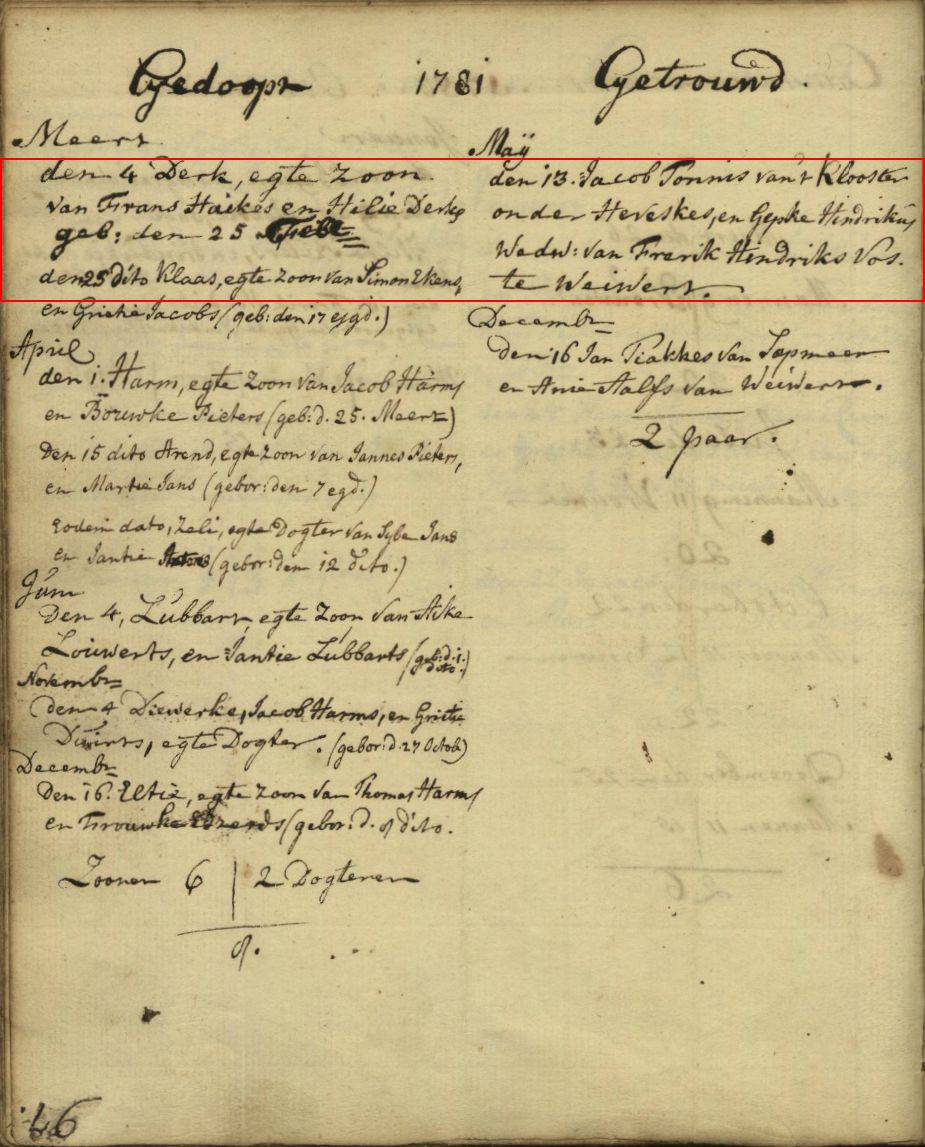 Gedoopt 1781 Getrouwd.
Meert
den 4 Derk, egte zoon
van Frans Haikes en Hilie Derks
geb: den 25 Febr
den 25 dito Klaas, egte zoon van Simon Ekens,
en Grietie Jacobs (geb: den 17 ejgd.)
April
den 1. Harm, egte zoon van Jacob Harms
en Bouwke Pieters (geb: d. 25. Meert)
Den 15 dito Arend, egte zoon van Jannes Pieters,
en Martie Jans (gebor: den 7 egd.)
Eodem dato, Zeli, egte Dogter van Sybe Jans
en Jantie (gebor: den 12 dito.)
Jun
Den 4, Lubbart, egte Zoon van Aike
Louwerts, en Jantie Lubbarts (geb: d. 1. dito.)
Novembr
den 4 Diewerke, Jacob Harms, en Grietie
egte Dogter. (gebor: d. 27 Octob)
Decembr
Den 16. Eltie, egte zoon van Thomas Harms
en Trouwke Edzerds (gebor: d. 8 dito.
Zoonen 6 | 2 Dogteren
8.
Maÿ
den 13. Jacob Tonnis van 't Klooster
onder Heveskes, en Gepke Hindrikus
Wedw: van Frerik Hindriks Vos.
te Weiwert.
Decembr
den 16 Jan Tiakkes van Sapmeer
en Anje Aalfs van Weiwert.
2 paar.
46